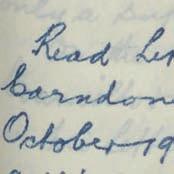 Read Le
Carndon
October 19